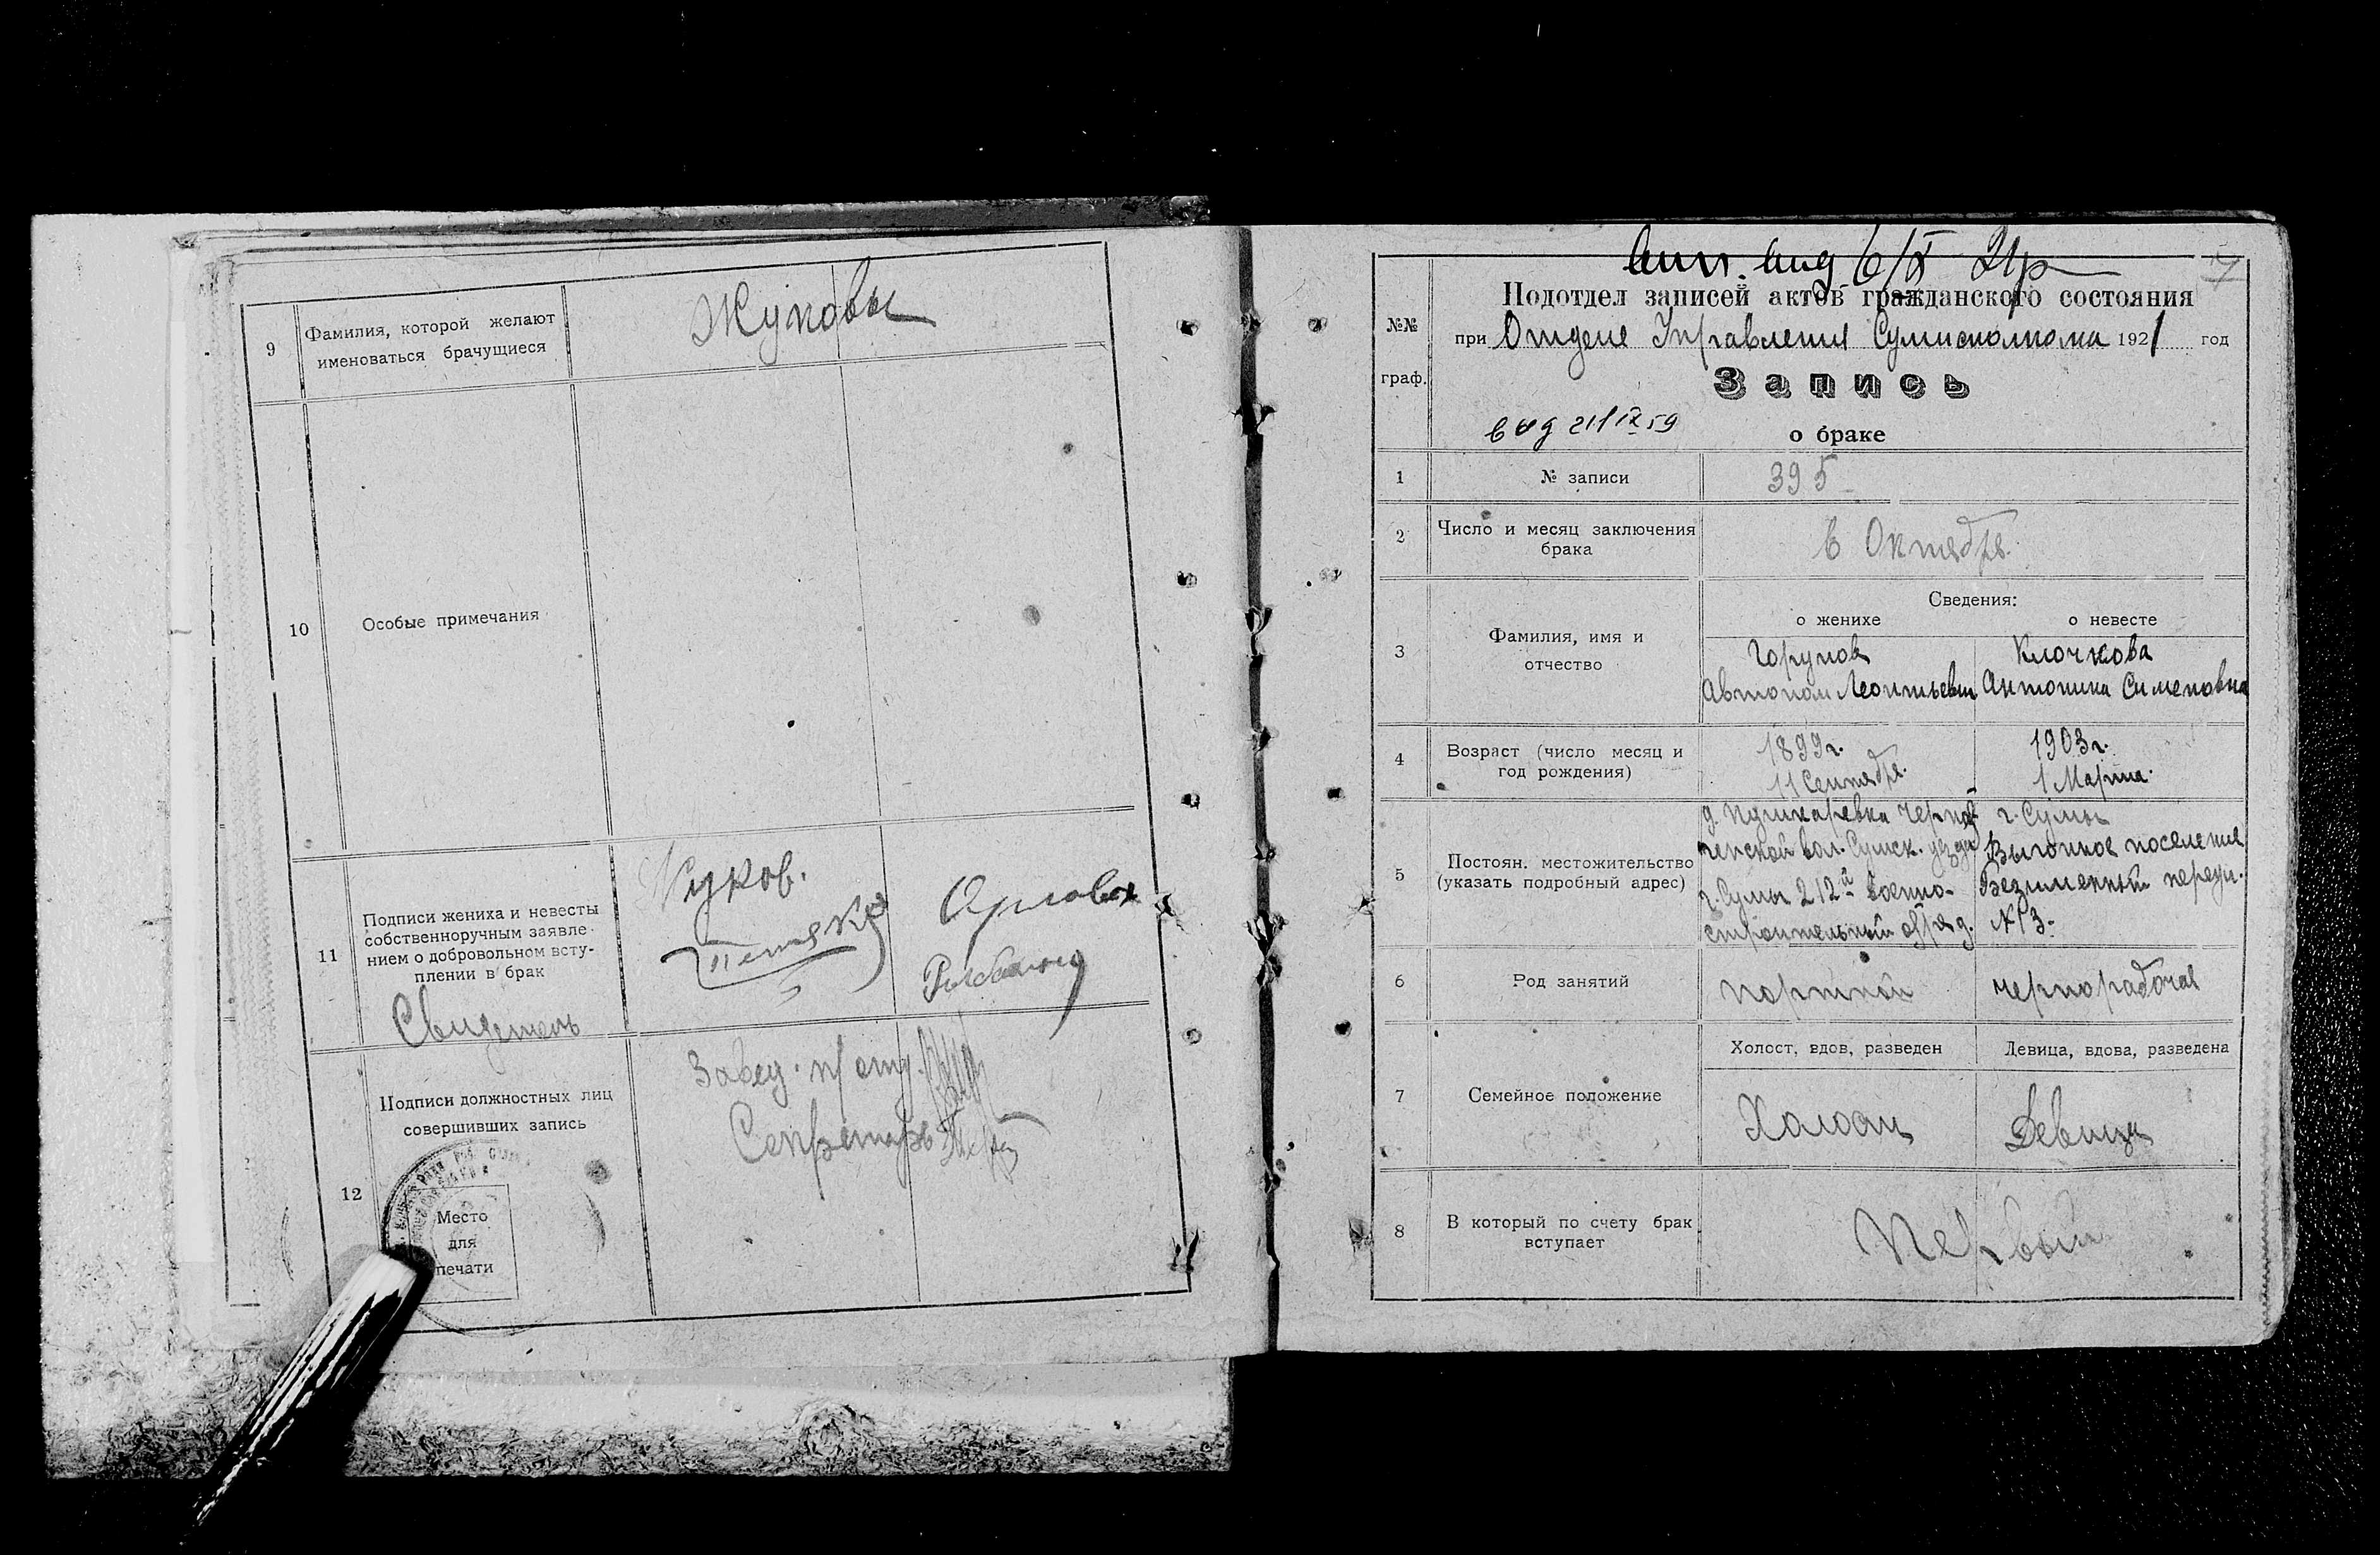 9
Фамилия, которой желают
именоваться брачущиеся
Жуковы
10
Особые примечания
11
Подписи жениха и невесты
собственноручным заявле-
нием о добровольном всту-
плении в брак
Свидетель
Жуков.
Орлова
12
Подписи должностных лиц
совершивших запись
Завед. п/отд.
Секретарь
Место
для
печати
6/X 21г
№№
граф.
Подотдел записей актов гражданского состояния
при Отделе Управления Сумисполкома 1921 год
Запись
выд 21/IX 59
о браке
1
№ записи
395
2
Число и месяц заключения
брака
6 Октября.
3
Фамилия, имя и
отчество
Сведения:
о женихе
о невесте
Горунов
Автоном Леонтьевич
Клочкова
Антонина Сименовна
4
Возраст (число месяц и
год рождения)
1899г.
11 Сентября.
1903г.
1 Марта.
5
Постоян. местожительство
(указать подробный адрес)
д. Пушкаревка Черно-
ченской вол. Сумск. уезда
г. Сумы 212й военно-
строительный отряд.
г. Сумы
Выгонное поселение
Безименный переул.
№ 3.
6
Род занятий
портной
чернорабочая
7
Семейное положение
Холост, вдов, разведен
Девица, вдова, разведена
Холост
Девица
8
В который по счету брак
вступает
Первый